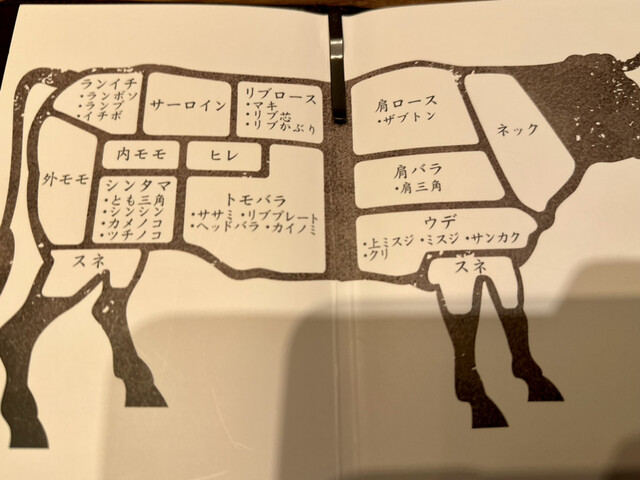 ランイチ
・ランボソ
・ランプ
・イチボ
サーロイン
リブロース
・マキ
・リブ芯
・リブかぶり
肩ロース
・ザブトン
ネック
外モモ
内モモ
ヒレ
シンタマ
・とも三角
・シンシン
・カメノコ
・ツチノコ
トモバラ
・ササミ ・リブプレート
・ヘッドバラ ・カイノミ
肩バラ
・肩三角
ウデ
・上ミスジ ・ミスジ ・サンカク
・クリ
スネ
スネ